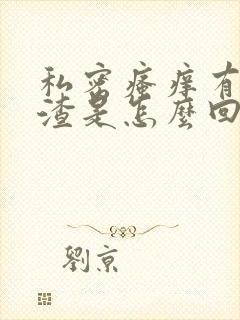 私密瘙痒有
渣是怎麼回
劉京